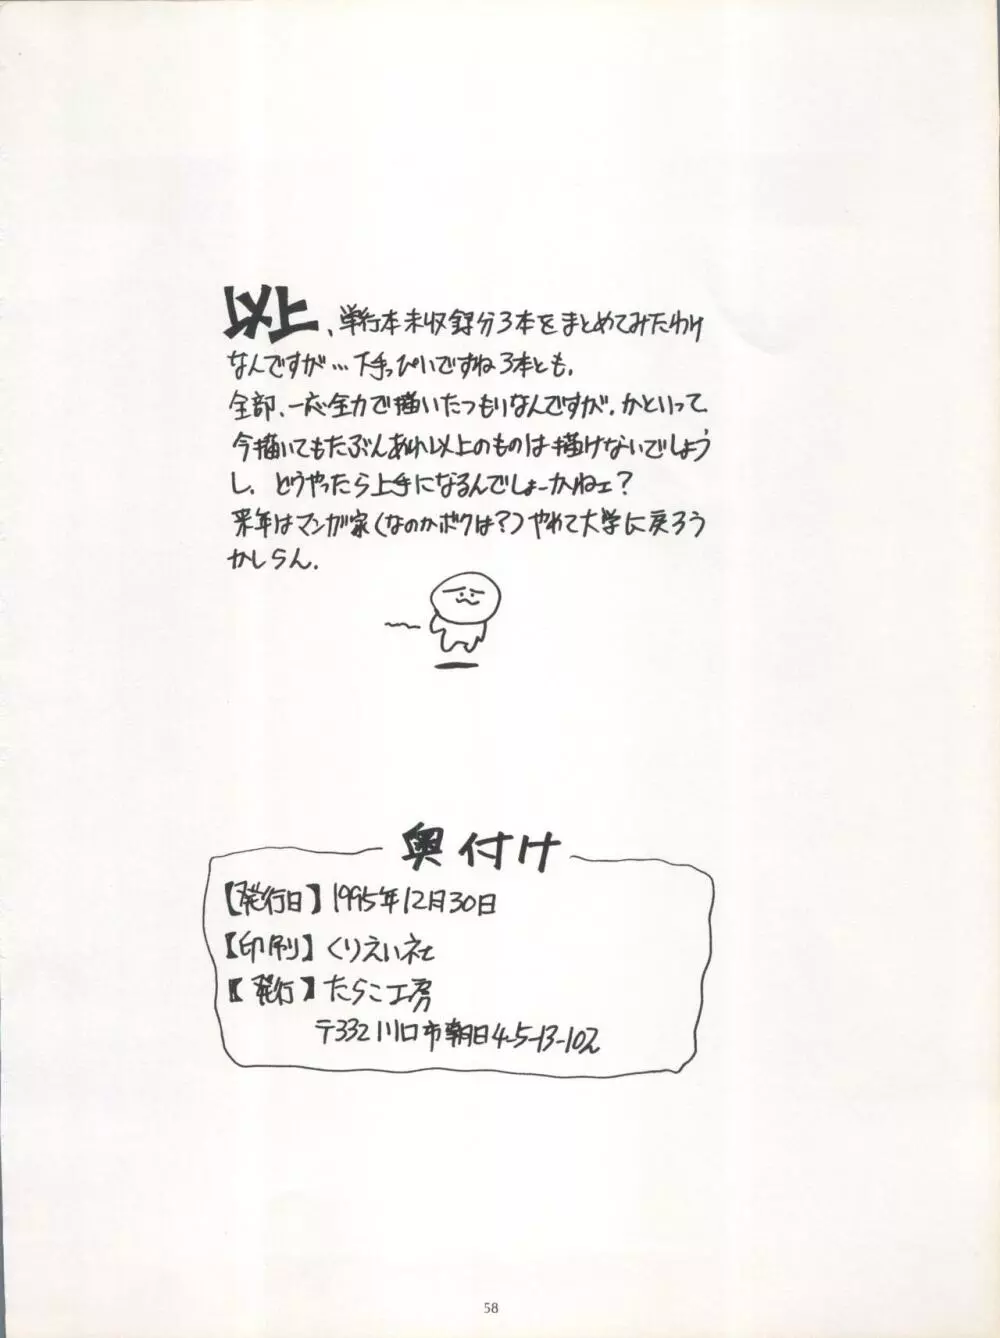 以上、単行本未収録分3本をまとめてみたわけ
なんですが…下手っぴいですね3本とも。
全部、一応全力で描いたつもりなんですが。かといって
今描いてもたぶんあれ以上のものは描けないでしょう
し。どうやったら上手になるんでしょーかねェ?
来年はマンガ家(なのかボクは?)やめて大学に戻ろう
かしらん。
奥付け
【発行日】1995年12月30日
【印刷】くりえい社
【発行】たらこ工房
〒332川口市朝日4-5-13-102
58